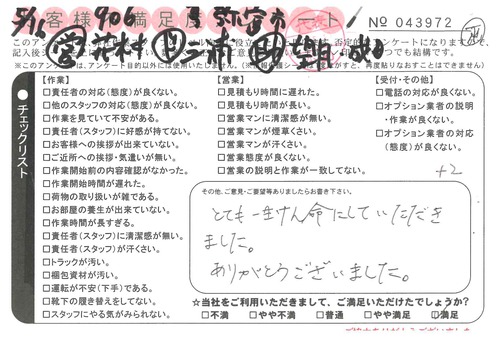 お客様満足度アンケート
№ 043972
チェックリスト
【作業】
□責任者の対応(態度)が良くない。
□他のスタッフの対応(態度)が良くない。
□作業を見ていて不安がある。
□責任者(スタッフ)に好感が持てない。
□お客様への挨拶が出来ていない。
□ご近所への挨拶・気遣いが無い。
□作業開始前の内容確認がなかった。
□作業開始時間が遅れた。
□荷物の取り扱いが雑である。
□お部屋の養生が出来ていない。
□作業時間が長すぎる。
□責任者(スタッフ)に清潔感が無い。
□責任者(スタッフ)が汗くさい。
□トラックが汚い。
□梱包資材が汚い。
□運転が不安(下手)である。
□靴下の履き替えをしてない。
□スタッフにやる気がみられない。
【営業】
□見積もり時間に遅れた。
□見積もり時間が長い。
□営業マンに清潔感が無い。
□営業マンが煙草くさい。
□営業マンが汗くさい。
□営業態度が良くない。
□営業の説明と作業が一致してない。
【受付・その他】
□電話の対応が良くない。
□オプション業者の説明
・作業が良くない。
□オプション業者の対応
(態度)が良くない。
+2
その他、ご意見・ご要望等ありましたらお書き下さい。
とても一生けん命にしていただき
ました。
ありがとうございました。
☆当社をご利用いただきまして、ご満足いただけたでしょうか?
□不満 □やや不満 □普通 □やや満足 ☑満足